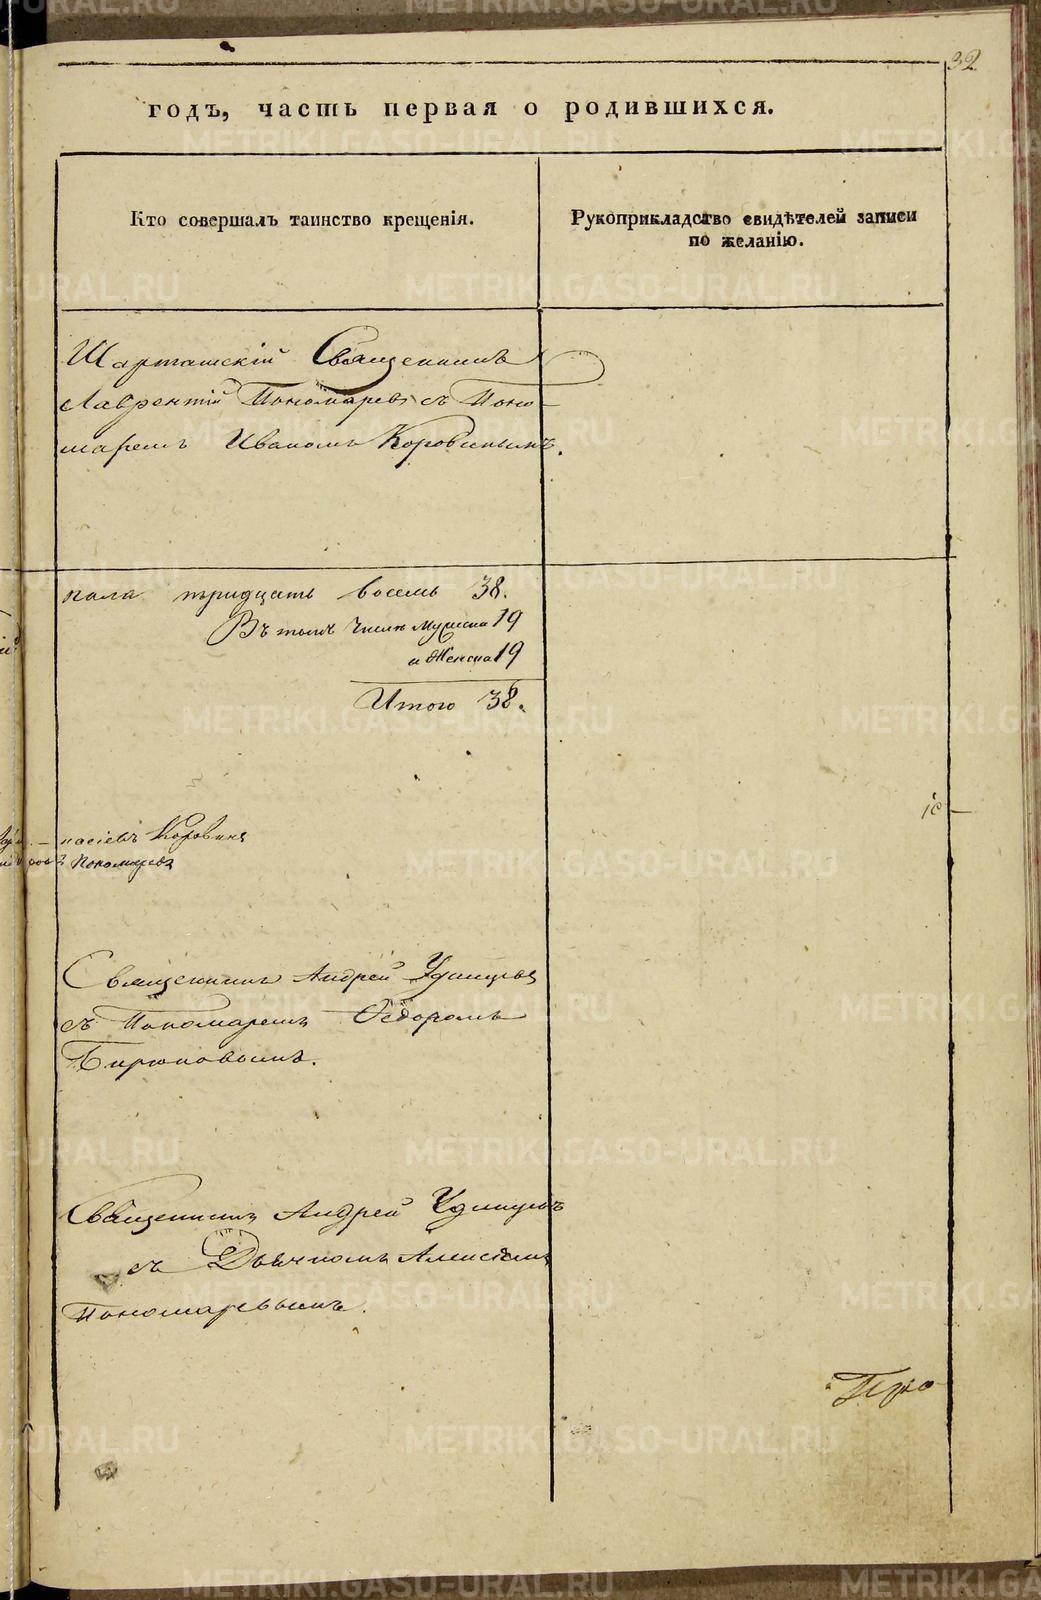 32
годъ, часть первая о родившихся.
Кто совершалъ таинство крещенія.
Рукоприкладство свидѣтелей записи
по желанію.
Шарташскій Священникъ
Лаврентій Пономаревъ съ Поно-
маремъ Иваномъ Коровинымъ.
пола тридцать восемь 38.
Въ томъ числѣ Мужеска 19
и Женска 19
Итого 38.
Коровинъ
Пономаревъ
Священникъ Андрей Удинцовъ
съ Пономаремъ Ѳедоромъ
Бирюковымъ.
Священникъ Андрей Удинцовъ
съ Дьячкомъ Алексѣемъ
Пономаревымъ.
METRIKI.GASO-URAL.RU